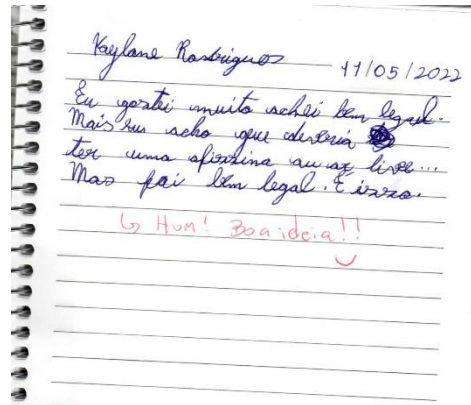 Kaylane Rodrigues 11/05/2022
Eu gostei muito achei bem legal.
Mais eu acho que deveria
ter uma oficina au ar livre...
Mas foi bem legal. É isso.
↳ Hum! Boa ideia!!